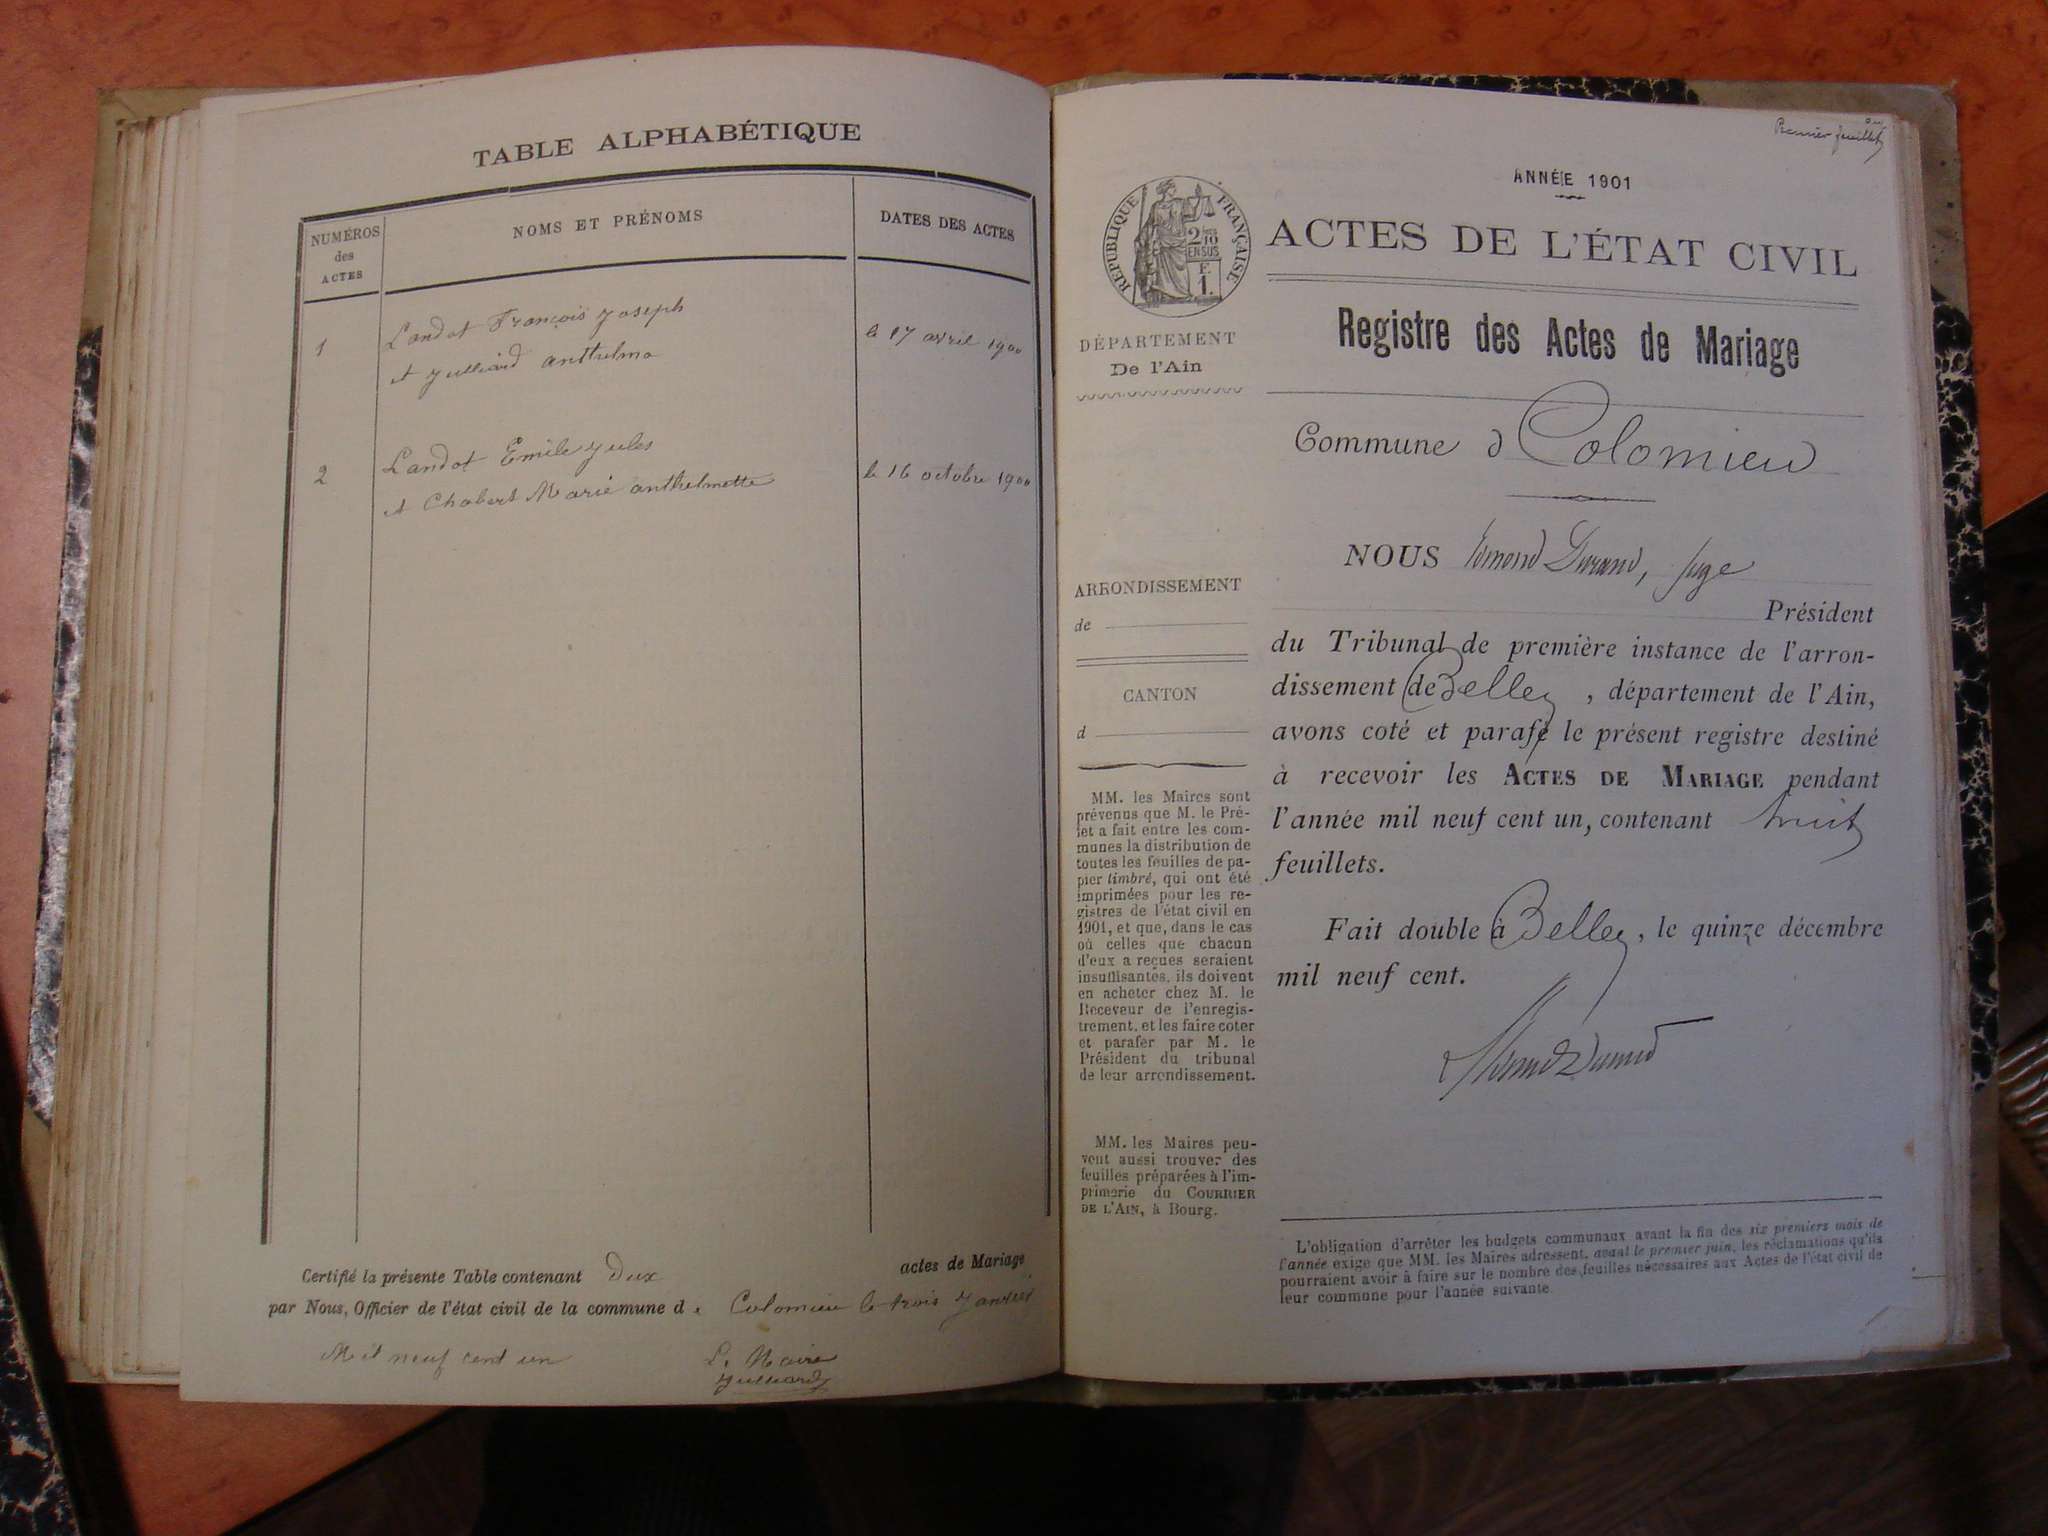 TABLE ALPHABÉTIQUE
NUMÉROS
des
ACTES
NOMS ET PRÉNOMS
DATES DES ACTES
1
Landot François Joseph
et Julliard anthelma
le 17 avril 1900
2
Landot Emile Jules
et Chabert Marie anthelmette
le 16 octobre 1900
Certifié la présente Table contenant dux actes de Mariage
par Nous, Officier de l'état civil de la commune de Colomieu le trois Janvier
Mil neuf cent un
Le Maire
Julliard
Premier feuillet
ANNÉE 1901
RÉPUBLIQUE FRANÇAISE
2/10
EN SUS
F.
1.
ACTES DE L'ÉTAT CIVIL
Registre des Actes de Mariage
DÉPARTEMENT
De l'Ain
Commune d Colomieu
NOUS Edmond Durand, juge
Président
du Tribunal de première instance de l'arron-
dissement de Belley, département de l'Ain,
avons coté et parafé le présent registre destiné
à recevoir les ACTES DE MARIAGE pendant
l'année mil neuf cent un, contenant huit
feuillets.
Fait double à Belley, le quinze décembre
mil neuf cent.
ARRONDISSEMENT
de
CANTON
d
MM. les Maires sont
prévenus que M. le Pré-
fet a fait entre les com-
munes la distribution de
toutes les feuilles de pa-
pier timbré, qui ont été
imprimées pour les re-
gistres de l'état civil en
1901, et que, dans le cas
où celles que chacun
d'eux a reçues seraient
insuffisantes, ils doivent
en acheter chez M. le
Receveur de l'enregis-
trement, et les faire coter
et parafer par M. le
Président du tribunal
de leur arrondissement.
MM. les Maires peu-
vent aussi trouver des
feuilles préparées à l'im-
primerie du COURRIER
DE L'AIN, à Bourg.
L'obligation d'arrêter les budgets communaux avant la fin des six premiers mois de
l'année exige que MM. les Maires adressent, avant le premier juin, les réclamations qu'ils
pourraient avoir à faire sur le nombre des feuilles nécessaires aux Actes de l'état civil de
leur commune pour l'année suivante.